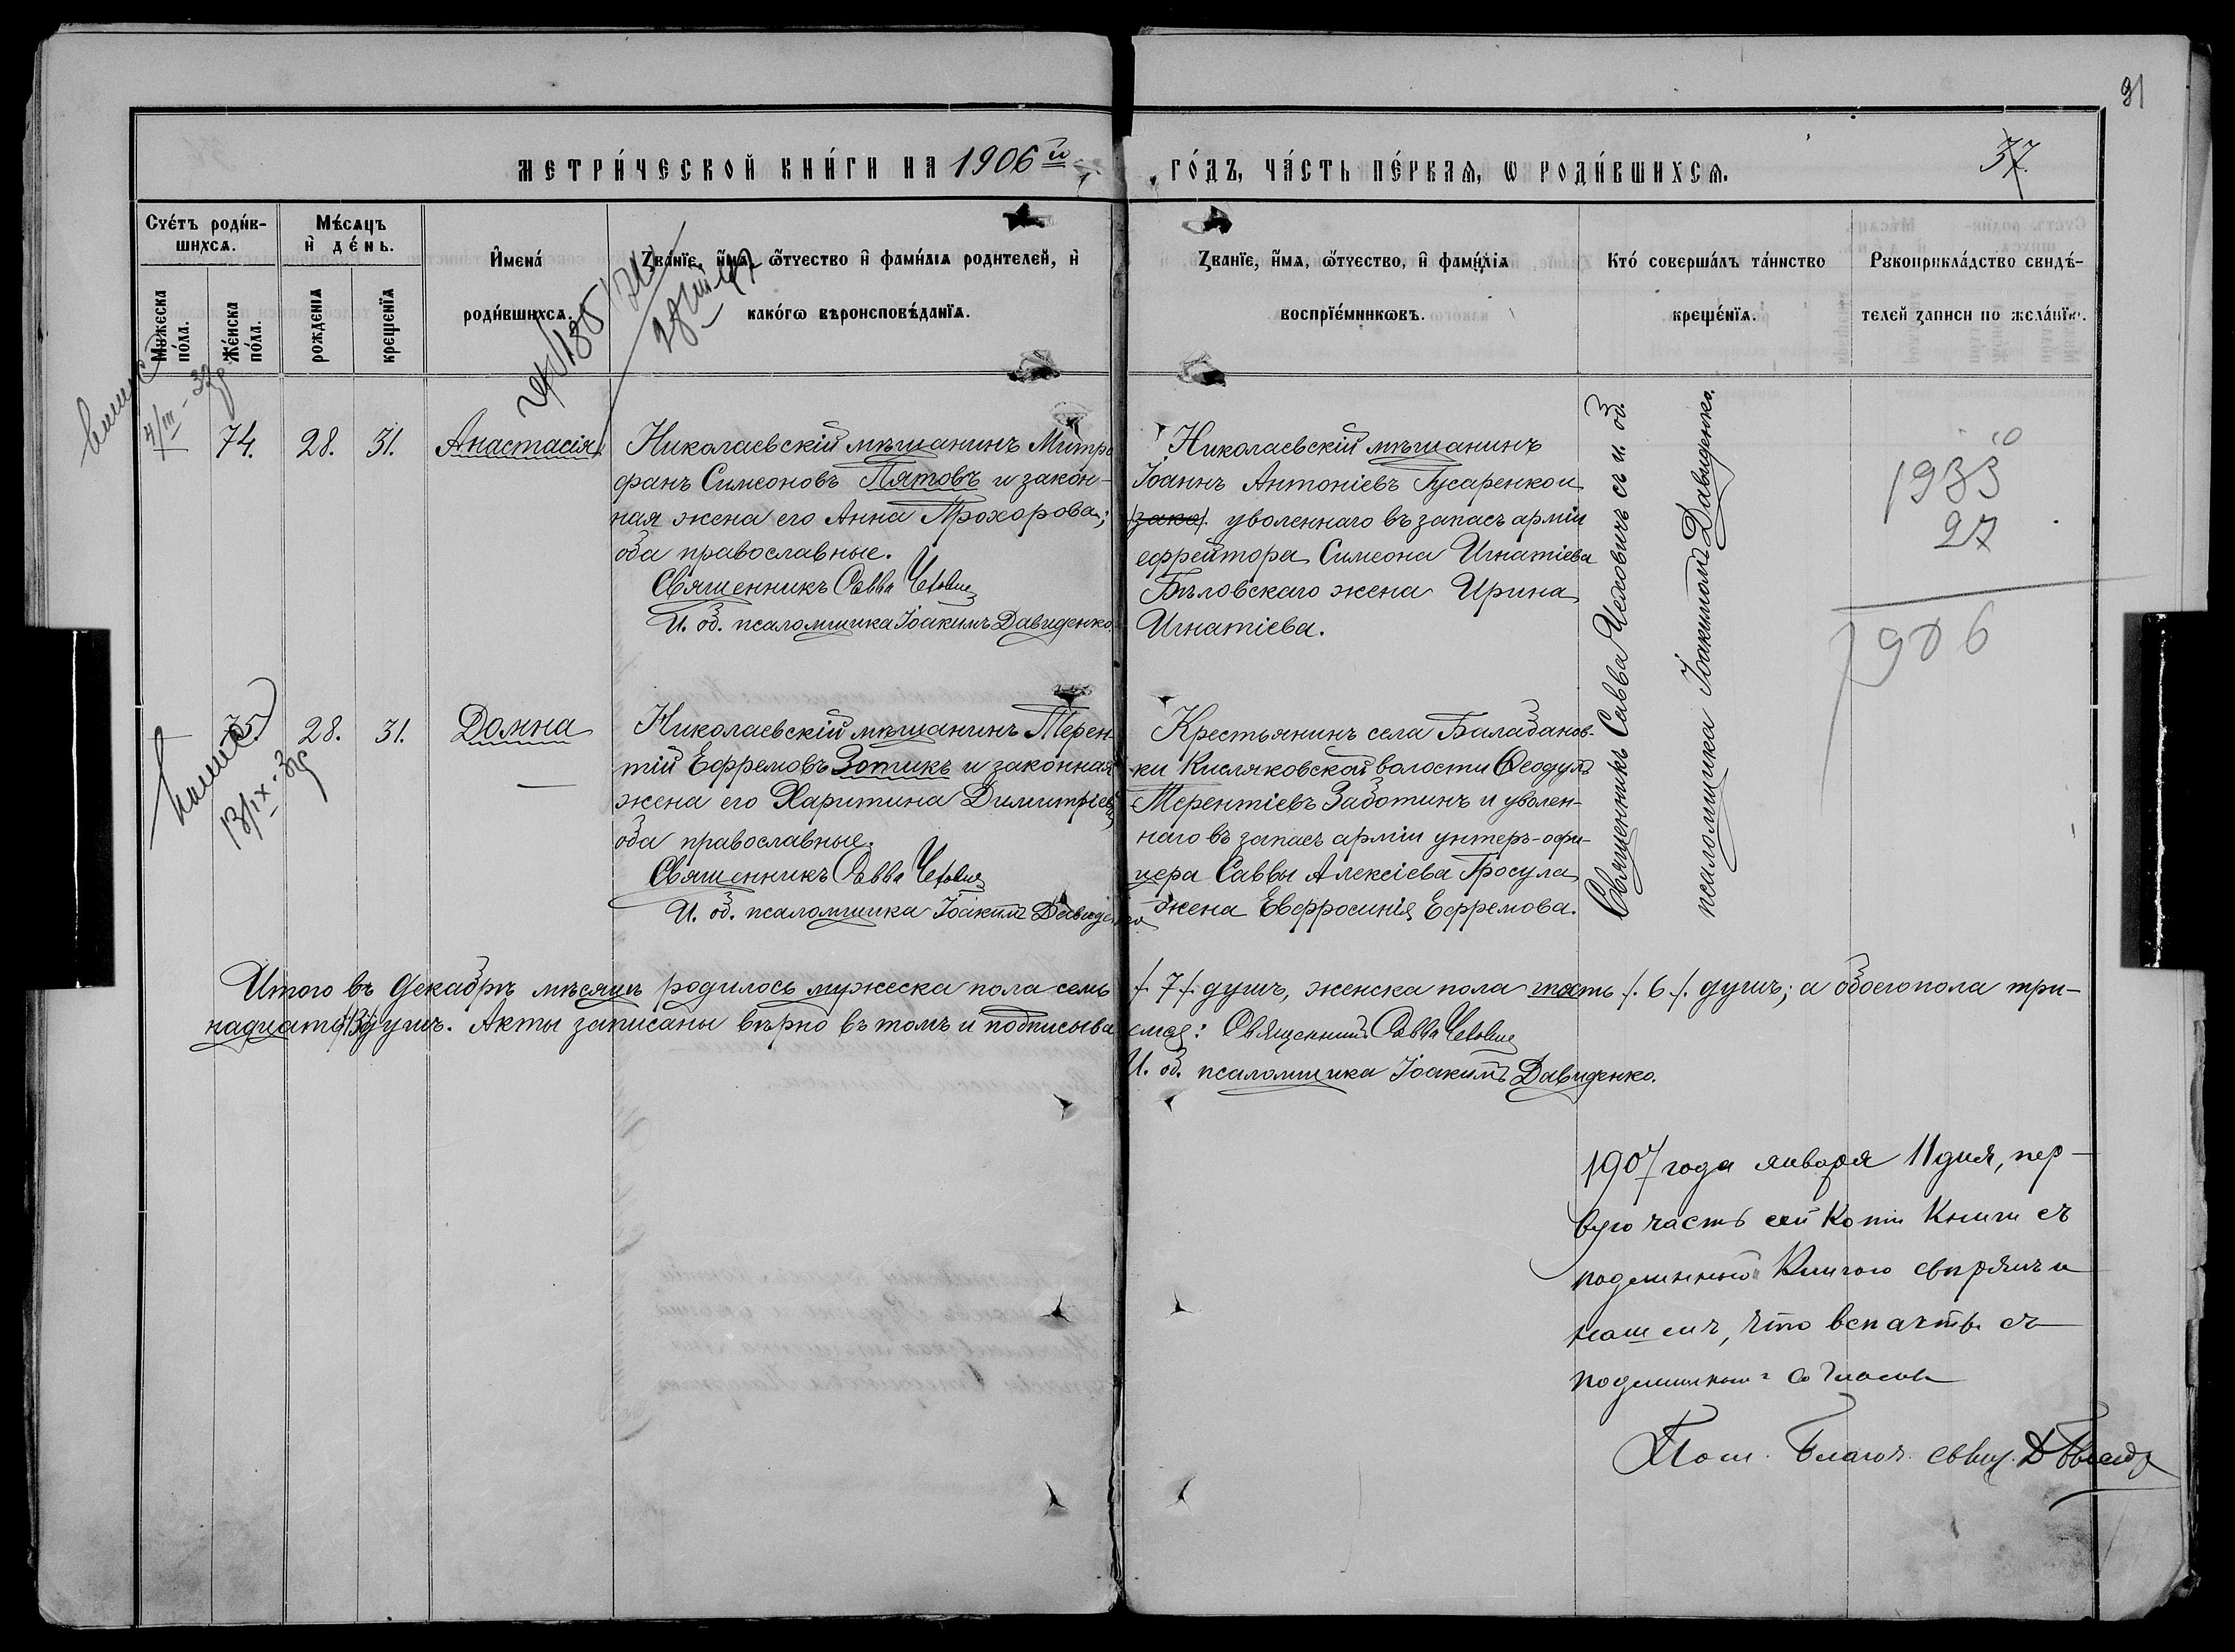 31
МЕТРИ́ЧЕСКОЙ КНИ́ГИ НА 1906й
ГО́ДЪ, ЧА́СТЬ ПЕ́РВАЯ, Ѡ РОДИ́ВШИХСЯ.
37.
Счéтъ роди́в-
шихся.
Мѣ́сяцъ
и҆ де́нь.
И҆мена́
роди́вшихся.
Зва́нїе, и҆́мя, ѻ҆́тчество и҆ фами́лїя родителей, и҆
како́гѡ вѣроисповѣ́данїя.
Зва́нїе, и҆́мя, ѻ҆́тчество, и҆ фами́лїя
воспрїе́мниковъ.
Кто́ соверша́лъ та́инство
креще́нїя.
Рукоприкла́дство свидѣ́-
телей записи по жела́нїю.
Мужеска
по́ла.
Же́нска
по́ла.
рожденїя
креще́нїя
4/III - 32
74.
28.
31.
Анастасія
Николаевскій мѣщанинъ Митро
фанъ Симеоновъ Пятовъ и закон-
ная жена его Анна Прохорова;
оба православные.
Священникъ Савва Чехович
И. об. псаломщика Іоакимъ Давиденко.
Николаевскій мѣщанинъ
Іоаннъ Антоніевъ Гусаренко и
/зака/. уволеннаго въ запасъ арміи
ефрейтора Симеона Игнатіева
Бѣловскаго жена Ирина
Игнатіева.
Священникъ Савва Чеховичъ съ и. об.
псаломщика Іоакимомъ Давиденко.
1933
27
1906
13/IX - 32
28.
31.
Домна
Николаевскій мѣщанинъ Терен-
тій Ефремовъ Зотикъ и законная
жена его Харитина Димитріева;
оба православные.
Священникъ Савва Чехович
И. об. псаломщика Іоакимъ Давиденко
Крестьянинъ села Балабанов-
ки Кисляковской волости Ѳеодулъ
Терентіевъ Заботинъ и уволен-
наго въ запасъ арміи унтеръ-офи-
цера Саввы Алексіева Гросула
жена Евфросинія Ефремова.
Итого въ Декабрѣ мѣсяцѣ родилось мужеска пола семь /. 7 /. душъ, женска пола шесть /. 6 /. душъ; а обоего пола три-
надцать /13/ душъ. Акты записаны вѣрно въ томъ и подписываемся: Священникъ Савва Чехович
И. об. псаломщика Іоакимъ Давиденко.
1907 года января 11 дня, пер-
вую часть сей копіи книги съ
подлинною книгою свѣрялъ и
нашелъ, что вспачтѣ съ
подлинною согласна
Пом. Благоч. свящ.